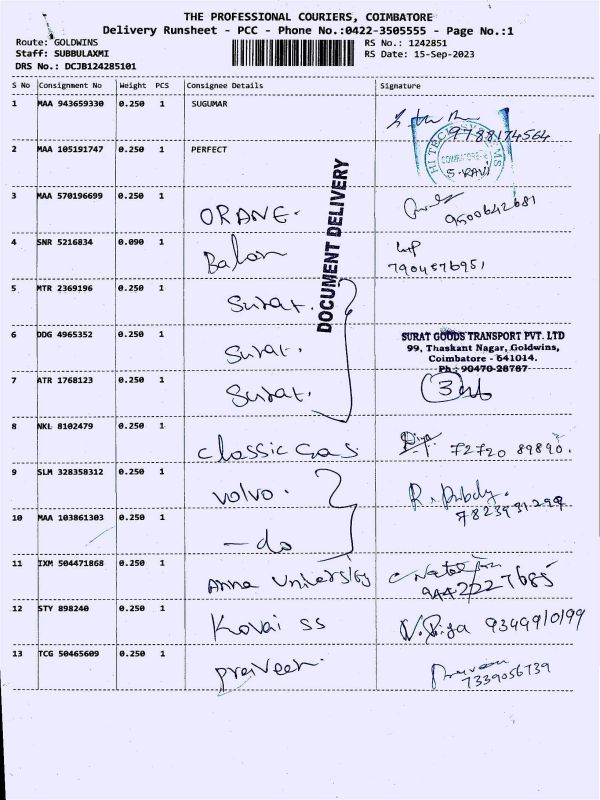 THE PROFESSIONAL COURIERS, COIMBATORE
Delivery Runsheet - PCC - Phone No.:0422-3505555 - Page No.:1
Route: GOLDWINS RS No.: 1242851
Staff: SUBBULAXMI RS Date: 15-Sep-2023
DRS No.: DCJB124285101
S No Consignment No Weight PCS Consignee Details Signature
1 MAA 943659330 0.250 1 SUGUMAR
9788174564
HI TECH SYSTEMS
COIMBATORE
S-RAVI
2 MAA 105191747 0.250 1 PERFECT
DOCUMENT DELIVERY
3 MAA 570196699 0.250 1 ORANE. 9500642681
4 SNR 5216834 0.090 1 Balan
7904876951
5 MTR 2369196 0.250 1 Surat.
6 DDG 4965352 0.250 1 Surat.
SURAT GOODS TRANSPORT PVT. LTD
99, Thaskant Nagar, Goldwins,
Coimbatore - 641014.
Ph: 90470-28787
7 ATR 1768123 0.250 1 Surat.
8 NKL 8102479 0.250 1 classic Gas 72720 89890.
9 SLM 328358312 0.250 1 volvo.
7823931299
10 MAA 103861303 0.250 1 - do
11 IXM 504471868 0.250 1 Anna University
9442227685
12 STY 898240 0.250 1 Kovai ss 9349910199
13 TCG 50465609 0.250 1 praveen. Praveen
7339056739